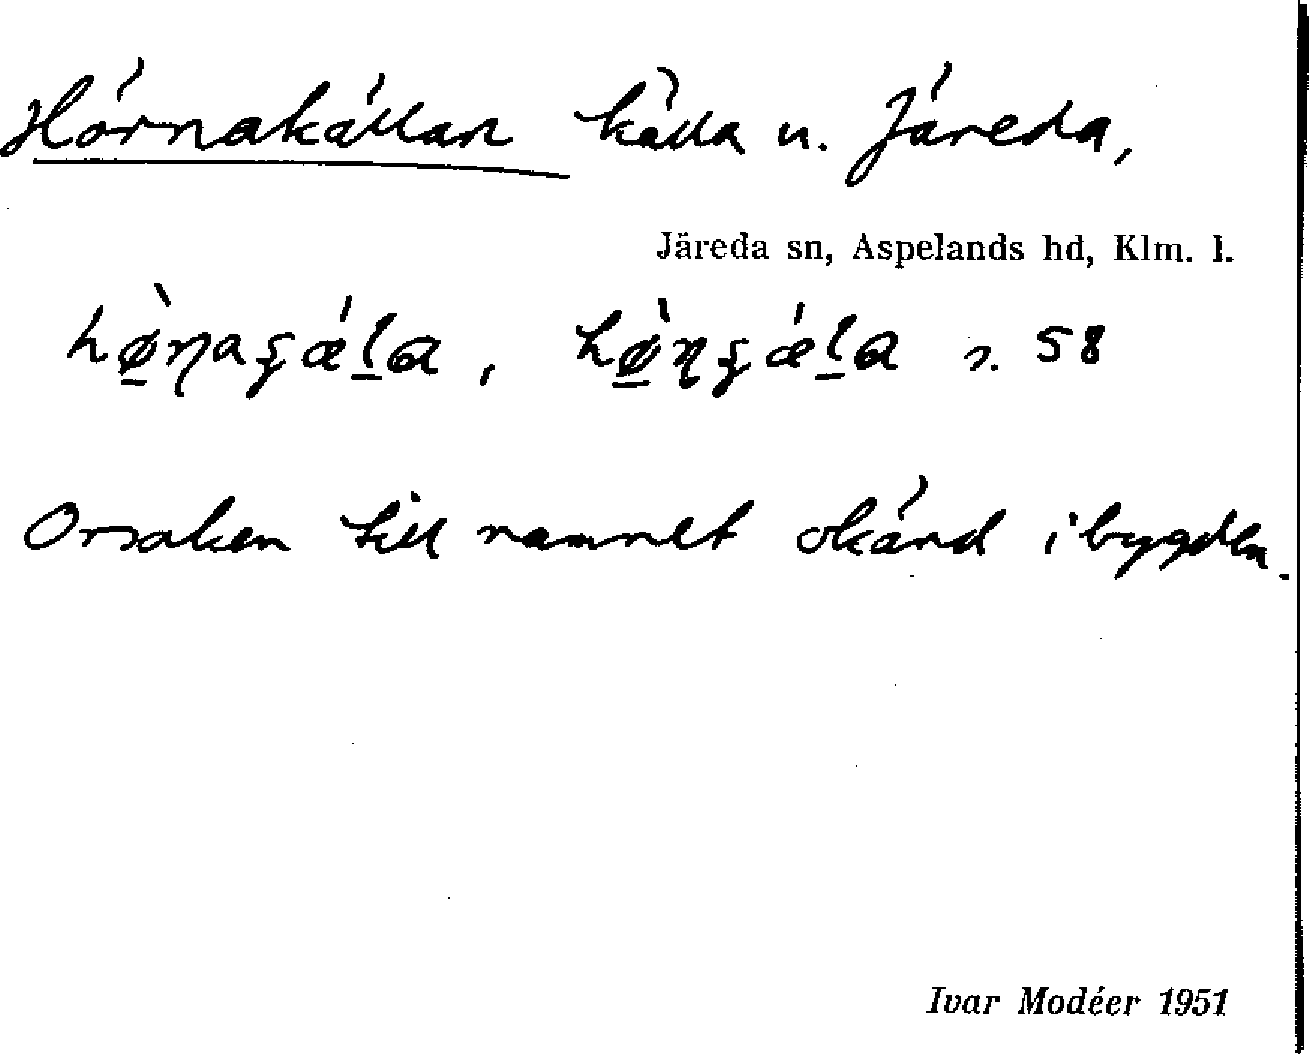 Hörnakällan källa u. Järeda,
Järeda sn, Aspelands hd, Klm. l.
s. 58
Orsaken till namnet okänd i bygden.
Ivar Modéer 1951